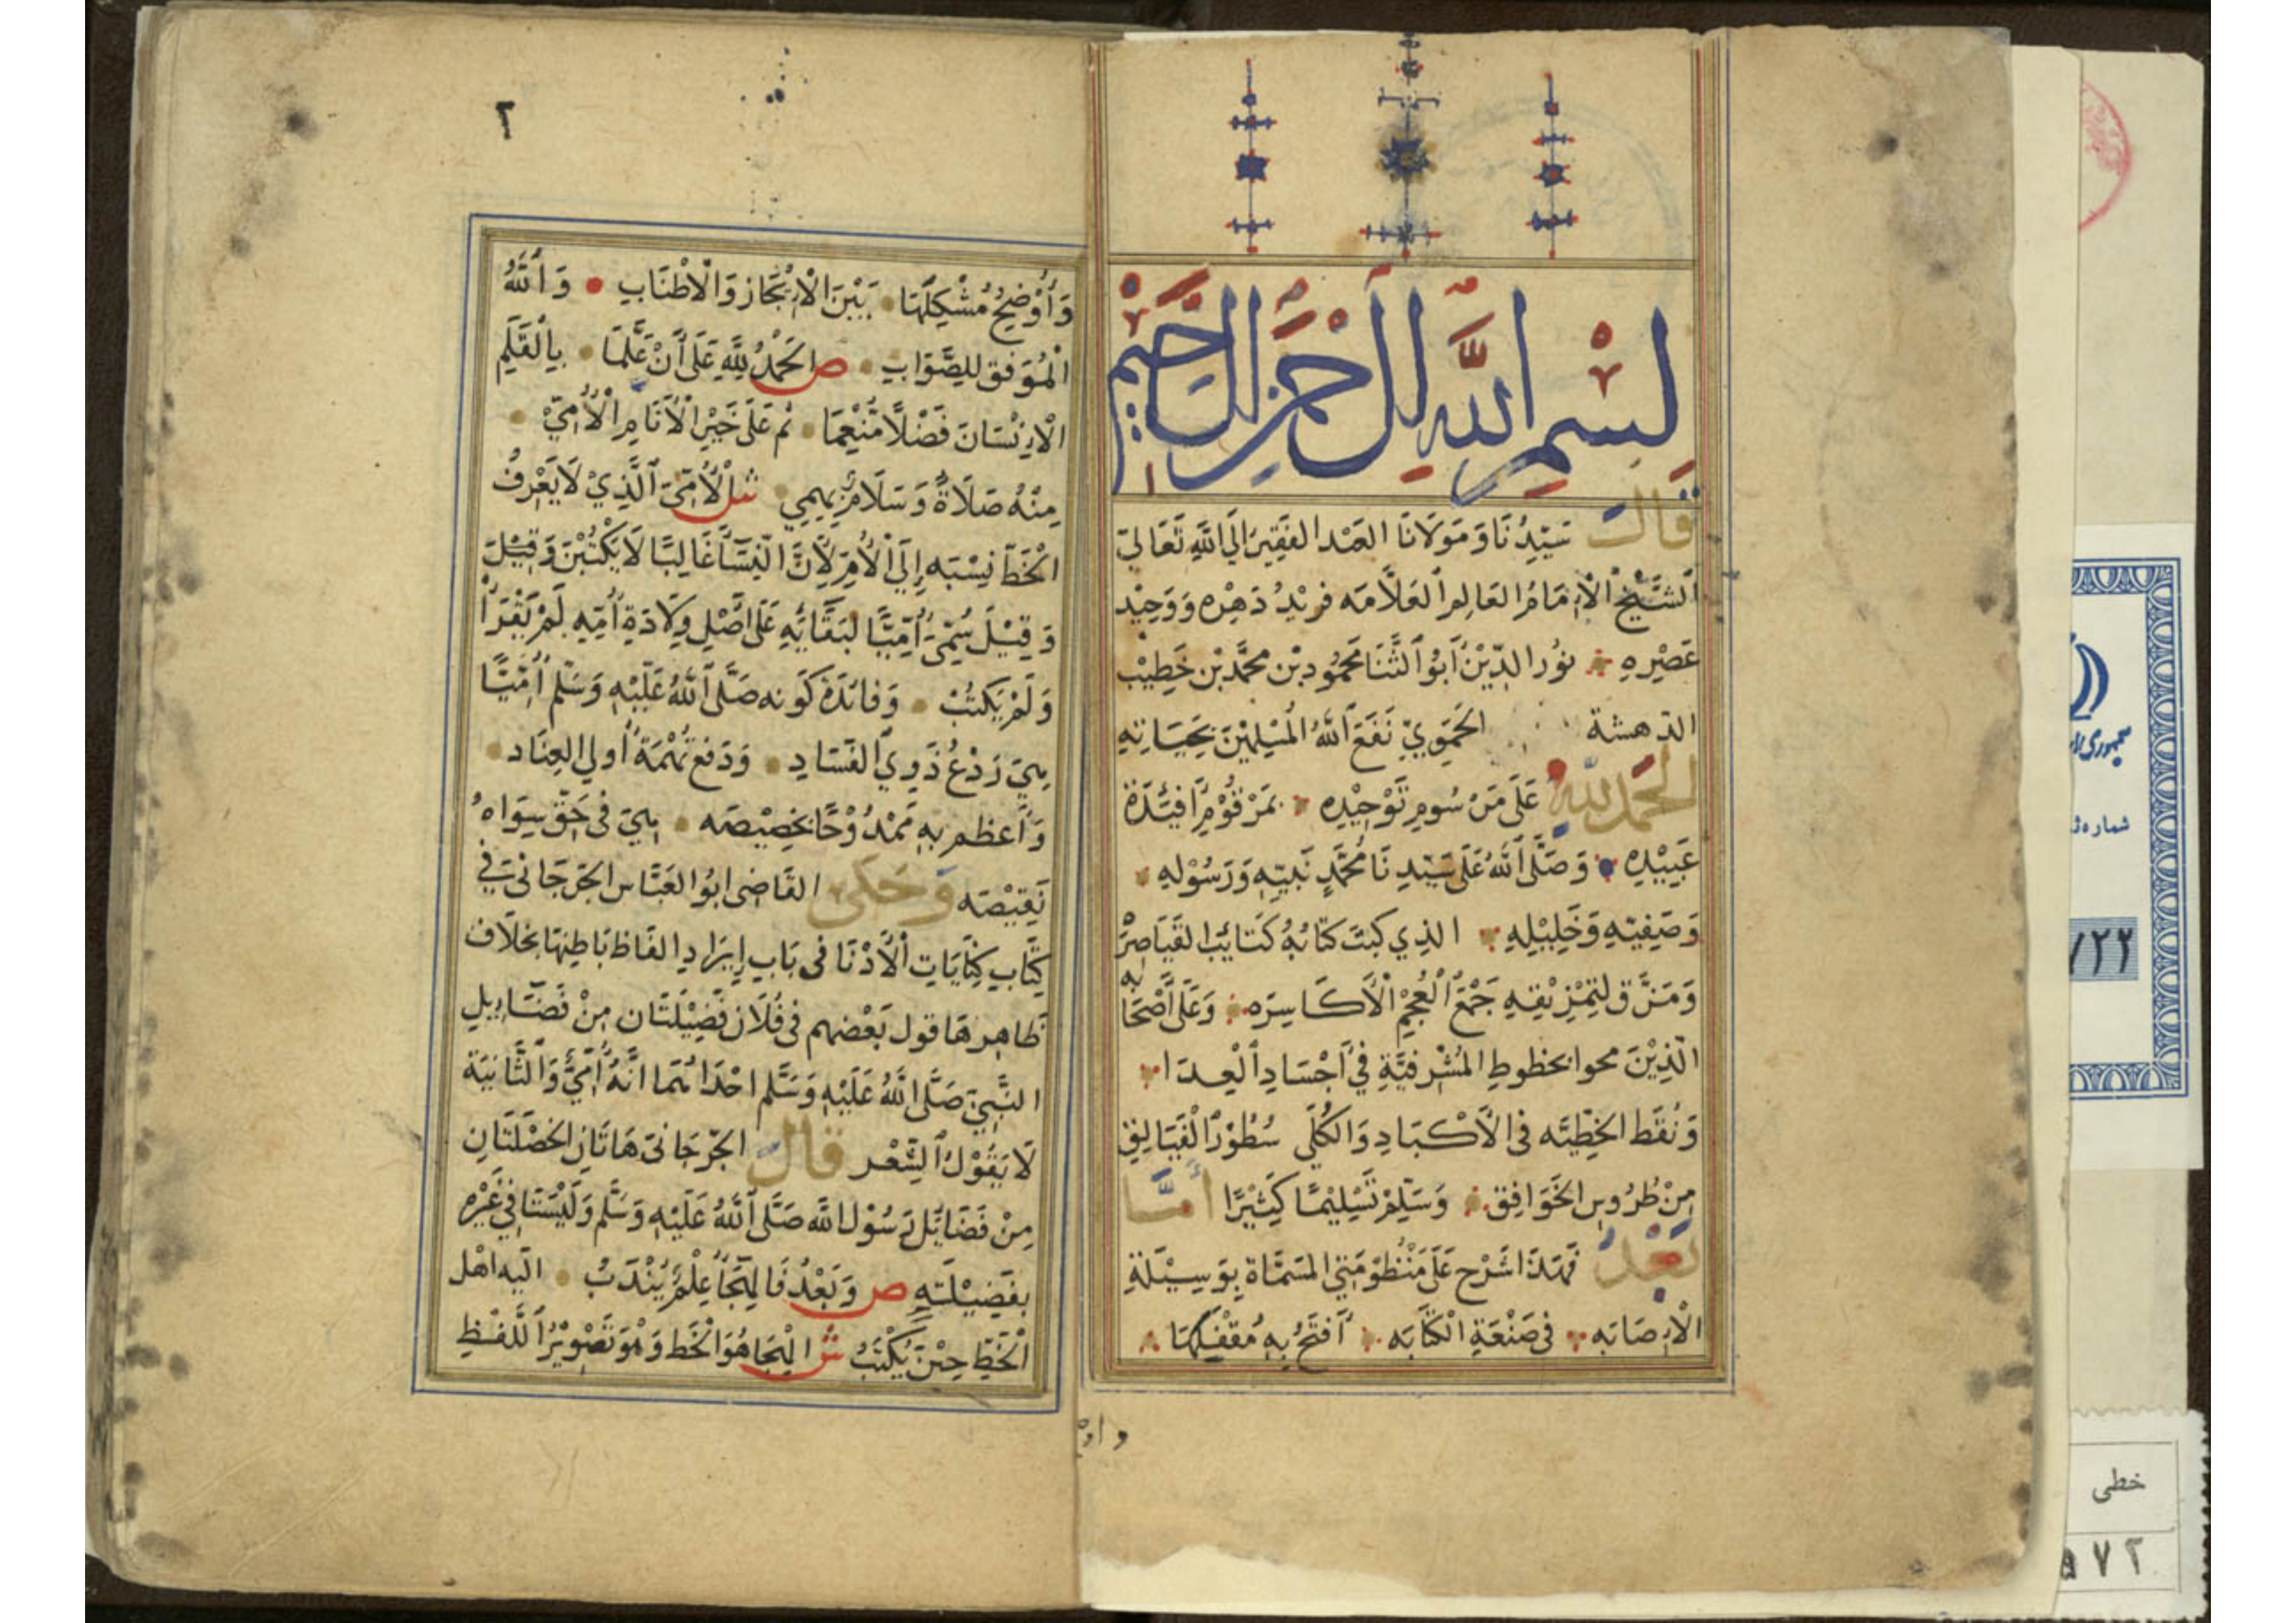 بسم الله الرحمن الرحيم
قال سَيِّدُنَا وَمَوْلَانَا العبد الفَقِيرُ إلَى اللهِ تَعَالَى
الشَّيْخُ الْإِمَامُ العَالِمُ العَلَّامَه فَرِيْدُ دَهْرِه وَوَحِيْد
عَصْرِهِ نُورُ الدِّيْنِ أَبُو الثَّنَا مَحْمُود بْن مُحَمَّد بْن خَطِيْب
الدهشة الحَمَوِيّ نَفَعَ اللهُ المُسْلِمْيْنَ بِحَيَاتِهِ
الحمد لله عَلَى مَنْ سُومِ تَوْحِيْدِهِ بمَرْقُوْمِ أَفْئِدَةِ
عَبِيْدِهِ وَصَلَّى اللهُ عَلَى سَيِّدِنَا مُحَمَّدٍ نَبِيِّهِ وَرَسُوْلِهِ
وَصَفِيِّهِ وَخَلِيْلِهِ الذِي كَبَتَ كِتَابُهُ كَتَائِبَ القَيَاصِرَه
وَمَزَّق لِتَمْزِيْقِهِ جَمْعَ الْعُجْمِ الْأَكَاسِرَه وَعَلَى أَصْحَابِه
الَّذِيْنَ محوا بخطوطِ المُشْرِفيَّةِ فِي أَجْسَادِ الْعِدَا
وَنُقَط الخَطِّيَّه فى الأَكْبَادِ وَالكُلَى سُطُوْرَ الْفَيَالِقِ
مِنْ طُرُوسِ الخَوَافِق وَسَلِّمْ تَسْلِيْمًا كَثِيْرًا أما
بعد فَهَذَا شَرْح عَلَى مَنْظُوْمَتِي المُسَمَّاة بِوَسِيْلَةِ
الْإِصَابَه فى صَنْعَةِ الْكِتَابَه أَفْتَحُ بِهِ مُقْفَلَهَا
واوضح
٢
وَأُوْضِحُ مُشْكِلَهَا بَيْنَ الْإِيْجَازِ وَالْأِطْنَابِ وَاللهُ
الْمُوَفق لِلصَّوَابِ ص الحَمْدُ لِلَّهِ عَلَى أَنْ عَلَّمَا بِالْقَلَمِ
الْإِنْسَانَ فَضْلًا مُنْعِمَا ثُمَّ عَلَى خَيْرِ الْأَنَامِ الْأُمِّيْ
مِنْهُ صَلَاةٌ وَسَلَامٌ يَهمِي ش الْأُمِّيّ الَّذِيْ لَا يَعْرِفُ
الْخَطَّ نِسْبَه إِلَى الْأُمِّ لِأَنَّ النِّسَاءَ غَالِبًا لَا يَكْتُبْنَ وَقِيْلَ
وَقِيْلَ سُمِّيَ أُمِّيًّا لبَقَائِهِ عَلَى أَصْلِ وِلَادَةِ أُمِّهِ لَمْ يَقْرَأْ
وَلَمْ يَكْتُبْ وَفَائدَة كَونه صَلَّى اللهُ عَلَيْهِ وَسَلَّم أُمِّيًّا
هِيَ رَدْعُ ذَوِي الفَسَادِ وَدَفعُ تُهْمَةِ أُولِي العِنَاد
وَأَعْظِم بِهِ مَمْدُوْحًا بخصِيْصَه هِيَ فى حَقِّ سِوَاهُ
نَقِيْصَه وَحَكى القَاضِى ابُو العَبَّاس الجَرجَانى فِي
كِتَاب كِنَايَاتِ الْأُدَبَا فى بَابِ إِيْرَادِ الفَاظ بَاطِنهَا بخلَاف
ظَاهِرهَا قول بَعْضهم فى فُلَان فَضِيْلَتَان مِنْ فَضَائِلِ
النَّبِيّ صَلَّى اللهُ عَلَيْهِ وَسَلَّم احْدَاهُمَا انَّهُ أُمِّيٌّ وَالثَّانِيَة
لَا يَقُوْلُ الشِّعْر قال الجرْجَانى هَاتَانِ الخصْلَتَانِ
مِنْ فَضَائِل رَسُوْل اللهِ صَلَّى اللهُ عَلَيْهِ وَسَلَّم وَلَيْسَتَا فِي غَيْره
بفَضِيْلَتهِ ص وَبَعْدُ فَالهِجَا عِلْمٌ يُنْدَبُ الَيه اهْل
الْخَطِّ حِيْنَ يُكْتَبُ ش الهِجَا هُوَ الْخَط وَهْوَ تَصْوِيْرُ اللَّفْظِ
جمهوری
شماره
/٢٢
خطی
٧٢